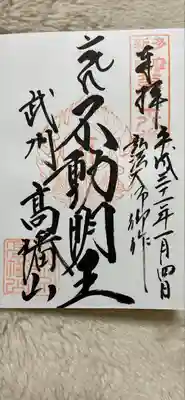 奉拝
平成三十一年一月四日
弘法大師御作
元不動明王
武州
高幡山